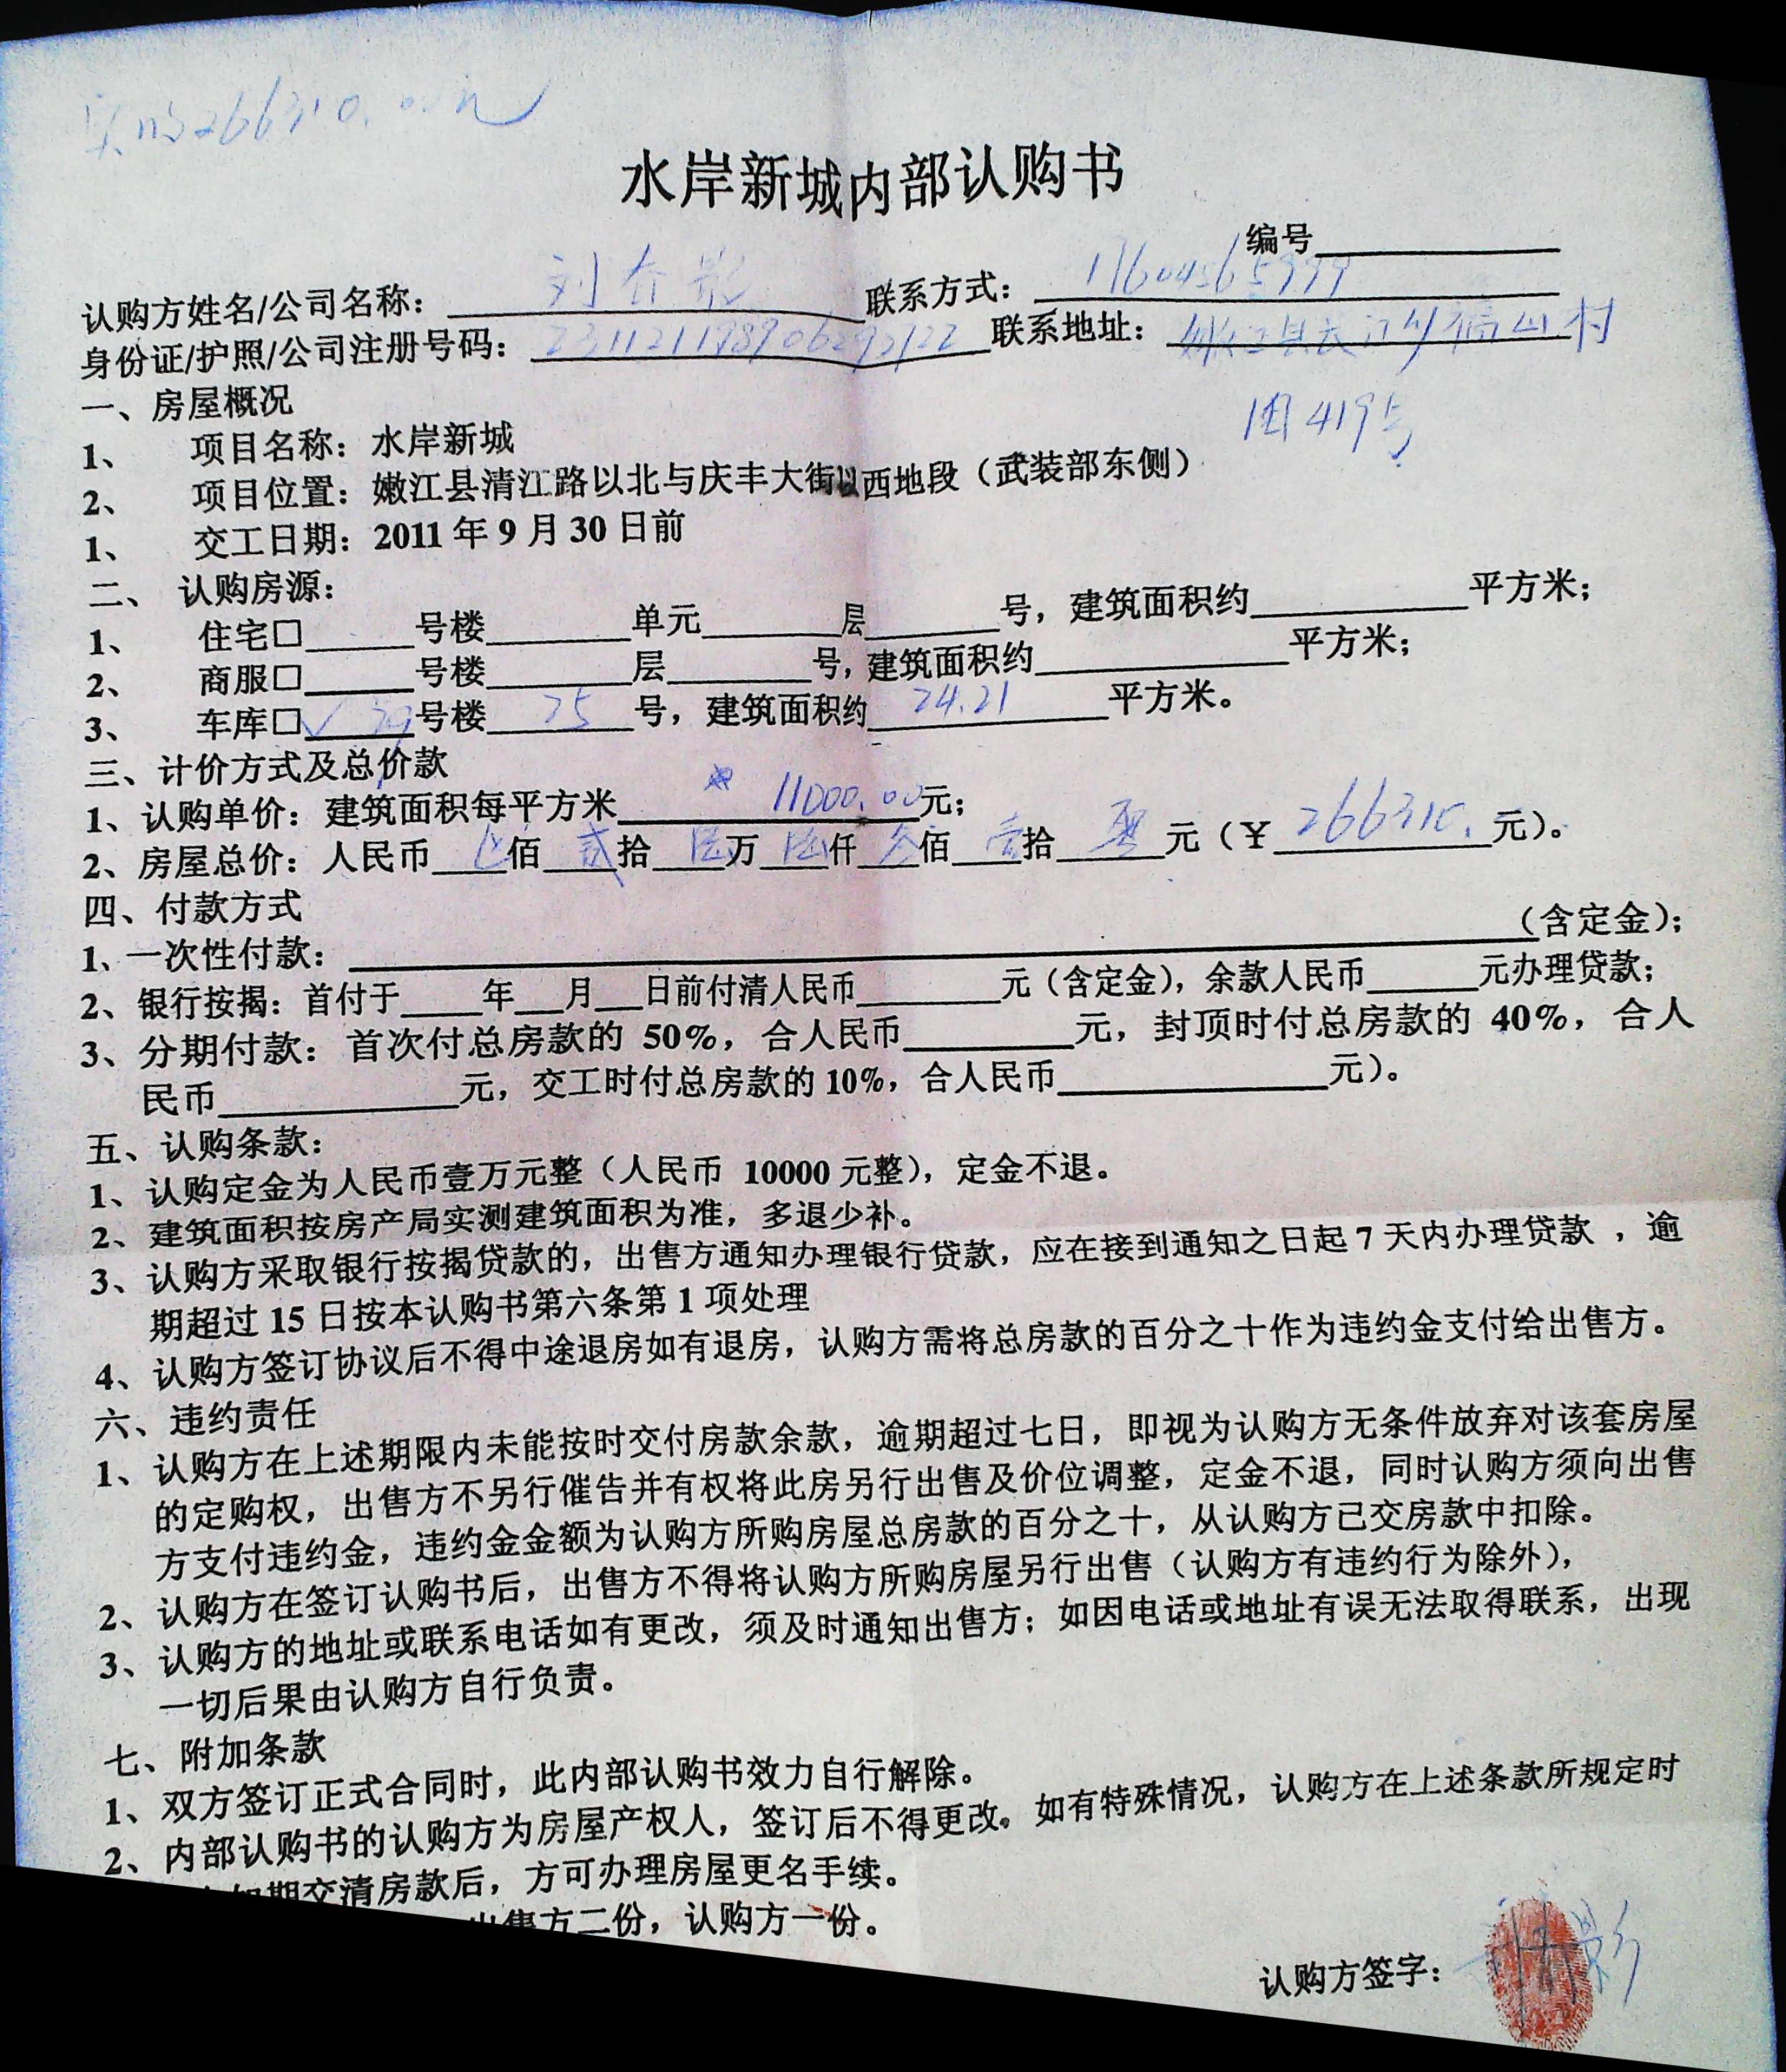 266310.00元
水岸新城内部认购书
编号
认购方姓名/公司名称： 刘 联系方式： 17604565999
身份证/护照/公司注册号码： 联系地址： 嫩江县长江乡 山村
组419号
一、房屋概况
1、 项目名称：水岸新城
2、 项目位置：嫩江县清江路以北与庆丰大街以西地段（武装部东侧）
1、 交工日期：2011年9月30日前
二、 认购房源：
1、 住宅口______号楼________单元________层________号，建筑面积约____________平方米；
2、 商服口______号楼________层________号，建筑面积约______________平方米；
3、 车库口✓ 号楼 25 号，建筑面积约 24.21 平方米。
三、计价方式及总价款
1、认购单价：建筑面积每平方米 11000.00元；
2、房屋总价：人民币 佰 贰 拾 陆 万 陆 仟 叁 佰 壹 拾 零 元（￥ 266310. 元）。
四、付款方式
1、一次性付款：____________（含定金）；
2、银行按揭：首付于____年__月__日前付清人民币________元（含定金），余款人民币______元办理贷款；
3、分期付款：首次付总房款的 50%，合人民币________元，封顶时付总房款的 40%，合人
民币____________元，交工时付总房款的10%，合人民币______________元）。
五、认购条款：
1、认购定金为人民币壹万元整（人民币 10000 元整），定金不退。
2、建筑面积按房产局实测建筑面积为准，多退少补。
3、认购方采取银行按揭贷款的，出售方通知办理银行贷款，应在接到通知之日起7天内办理贷款 ，逾
期超过15日按本认购书第六条第1项处理
4、认购方签订协议后不得中途退房如有退房，认购方需将总房款的百分之十作为违约金支付给出售方。
六、违约责任
1、认购方在上述期限内未能按时交付房款余款，逾期超过七日，即视为认购方无条件放弃对该套房屋
的定购权，出售方不另行催告并有权将此房另行出售及价位调整，定金不退，同时认购方须向出售
方支付违约金，违约金金额为认购方所购房屋总房款的百分之十，从认购方已交房款中扣除。
2、认购方在签订认购书后，出售方不得将认购方所购房屋另行出售（认购方有违约行为除外），
3、认购方的地址或联系电话如有更改，须及时通知出售方；如因电话或地址有误无法取得联系，出现
一切后果由认购方自行负责。
七、附加条款
1、双方签订正式合同时，此内部认购书效力自行解除。
2、内部认购书的认购方为房屋产权人，签订后不得更改。如有特殊情况，认购方在上述条款所规定时
如期交清房款后，方可办理房屋更名手续。
出售方二份，认购方一份。
认购方签字：